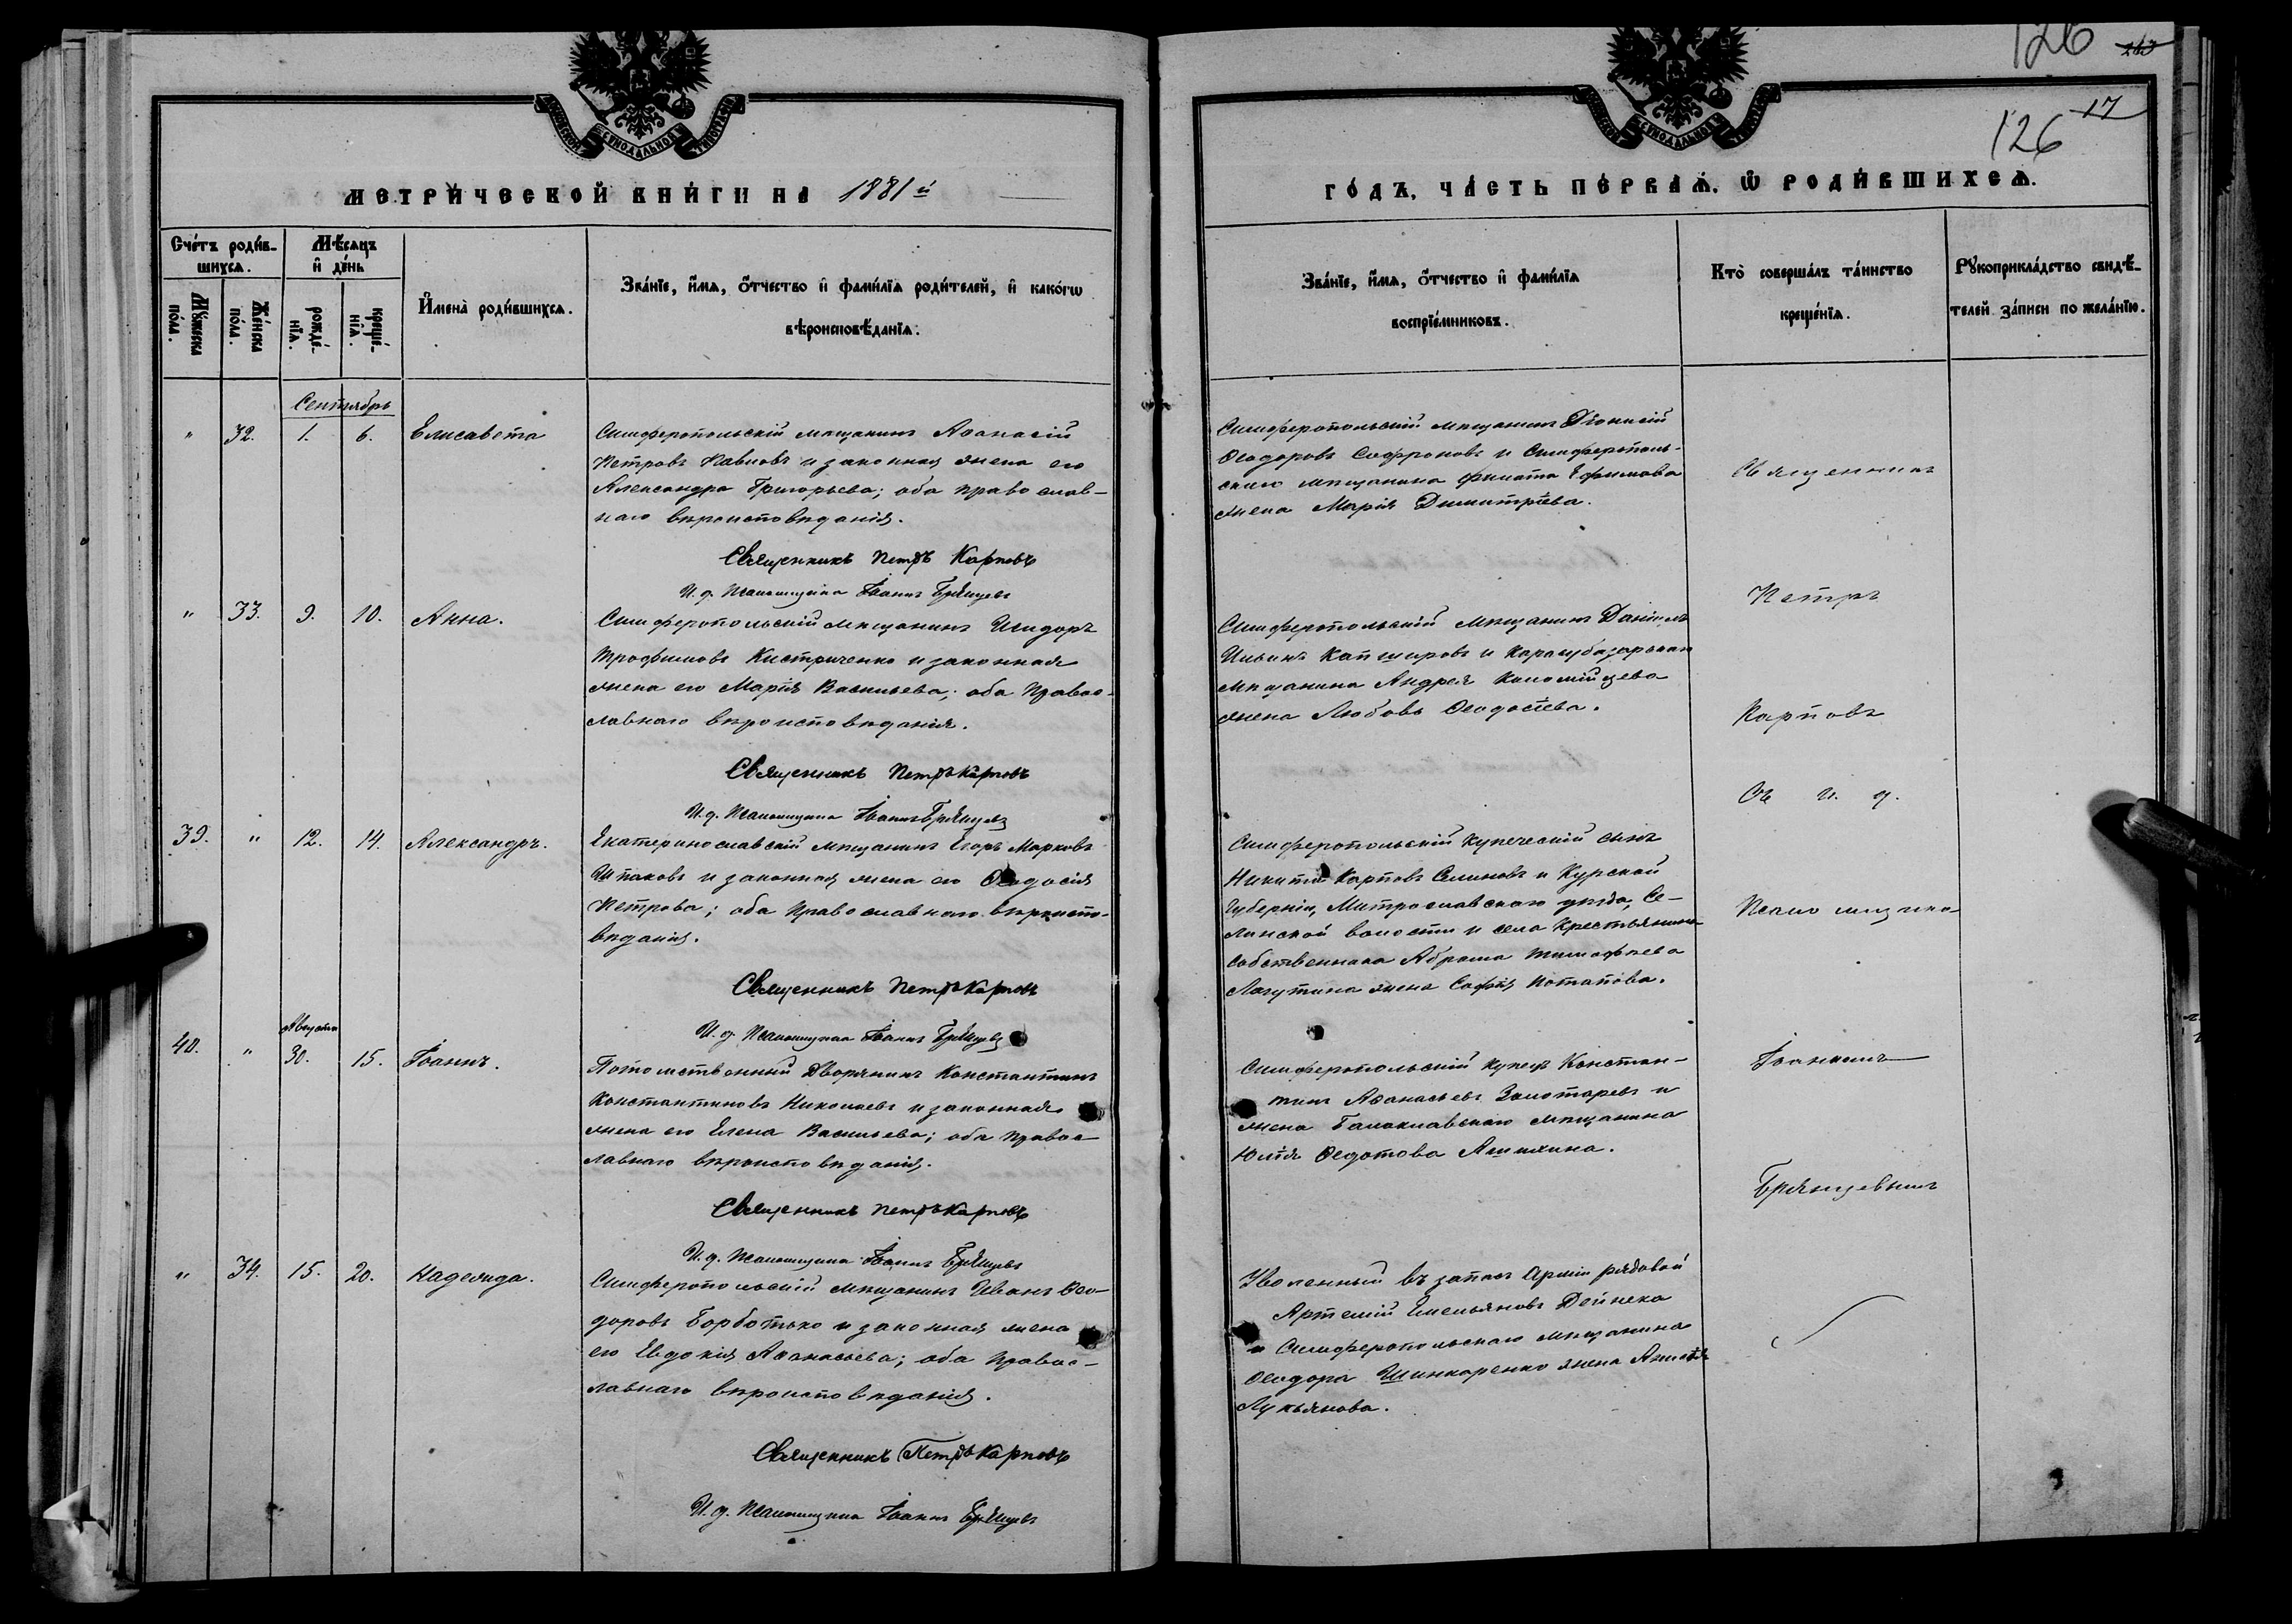 126 263
126 17
МЕТРИЧЕСКОЙ КНИГИ НА 1881й
ГОДЪ, ЧАСТЬ ПЕРВАЯ, Ѡ РОДИВШИХСЯ.
Счетъ родив-
шихся.
Мѣсяцъ
и день
Мужеска
пола.
Женска
пола.
рожде-
нія.
креще-
нія.
Имена родившихся.
Званіе, имя, отчество и фамилія родителей, и какогѡ
вѣроисповѣданія.
Званіе, имя, отчество и фамилія
воспріемниковъ.
Кто совершалъ таинство
крещенія.
Рукоприкладство свидѣ-
телей записи по желанію.
Сентябрь
" 32. 1. 6. Елисавета
Симферопольскій мѣщанинъ Аѳанасій
Петровъ Павловъ и законная жена его
Александра Григорьева; оба православ-
наго вѣроисповѣданія.
Священникъ Петръ Карповъ
И. д. Псаломщика Іоаннъ Брянцевъ
Симферопольскій мѣщанинъ Діонисій
Ѳеодоровъ Софроновъ и Симферополь-
скаго мѣщанина Филата Ефимова
жена Марія Димитріева.
" 33. 9. 10. Анна.
Симферопольскій мѣщанинъ Исидоръ
Трофимовъ Кистриченко и законная
жена его Марія Васильева; оба правос-
лавнаго вѣроисповѣданія.
Священникъ Петръ Карповъ
И. д. Псаломщика Іоаннъ Брянцевъ
Симферопольскій мѣщанинъ Даніилъ
Ильинъ Капшировъ и Карасубазарскаго
мѣщанина Андрея Коломійцева
жена Любовь Ѳеодосіева.
39. " 12. 14. Александръ.
Екатеринославскій мѣщанинъ Егоръ Марковъ
Шпаковъ и законная жена его Ѳеодосія
Петрова; оба православнаго вѣроиспо-
вѣданія.
Священникъ Петръ Карповъ
И. д. Псаломщика Іоаннъ Брянцевъ
Симферопольскій купеческій сынъ
Никита Карповъ Селиновъ и Курской
Губерніи, Митрославскаго уѣзда, Се-
линской волости и села Крестьянина-
собственника Абрама Тимофѣева
Лагутина жена Софія Потапова.
Августа
40. " 30. 15. Іоаннъ.
Потомственный Дворянинъ Константинъ
Константиновъ Николаевъ и законная
жена его Елена Васильева; оба правос-
лавнаго вѣроисповѣданія.
Священникъ Петръ Карповъ
И. д. Псаломщика Іоаннъ Брянцевъ
Симферопольскій купецъ Констан-
тинъ Аѳанасьевъ Золотаревъ и
жена Балаклавскаго мѣщанина
Юлія Ѳедотова Ашихина.
" 34. 15. 20. Надежда.
Симферопольскій мѣщанинъ Иванъ Ѳео-
доровъ Борботько и законная жена
его Евдокія Аѳанасьева; оба правос-
лавнаго вѣроисповѣданія.
Священникъ Петръ Карповъ
И. д. Псаломщика Іоаннъ Брянцевъ
Уволенный въ запасъ Арміи рядовой
Артемій Емельяновъ Дейнека
и Симферопольскаго мѣщанина
Ѳеодора Шинкаренко жена
Лукьянова.
Священникъ
Петръ
Карповъ
Съ и. д.
Псаломщика
Іоанномъ
Брянцевымъ